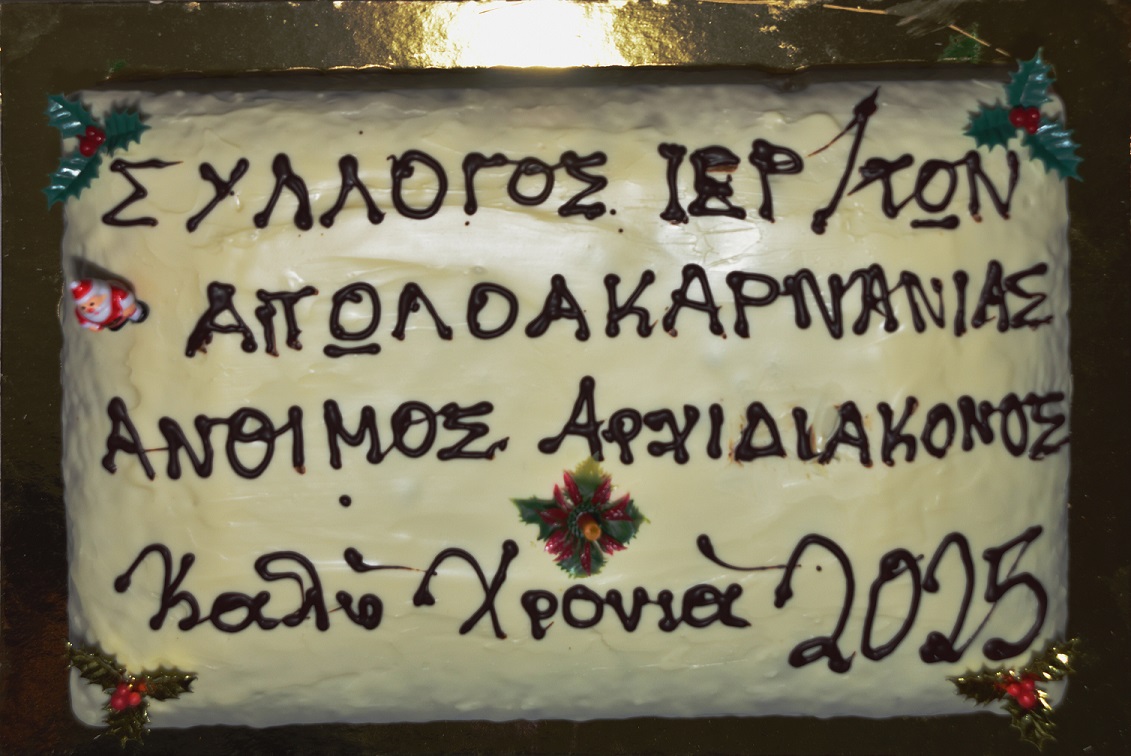 ΣΥΛΛΟΓΟΣ ΙΕΡ/ΤΩΝ
ΑΙΤΩΛΟΑΚΑΡΝΑΝΙΑΣ
ΑΝΘΙΜΟΣ ΑΡΧΙΔΙΑΚΟΝΟΣ
Καλή Χρονιά 2025